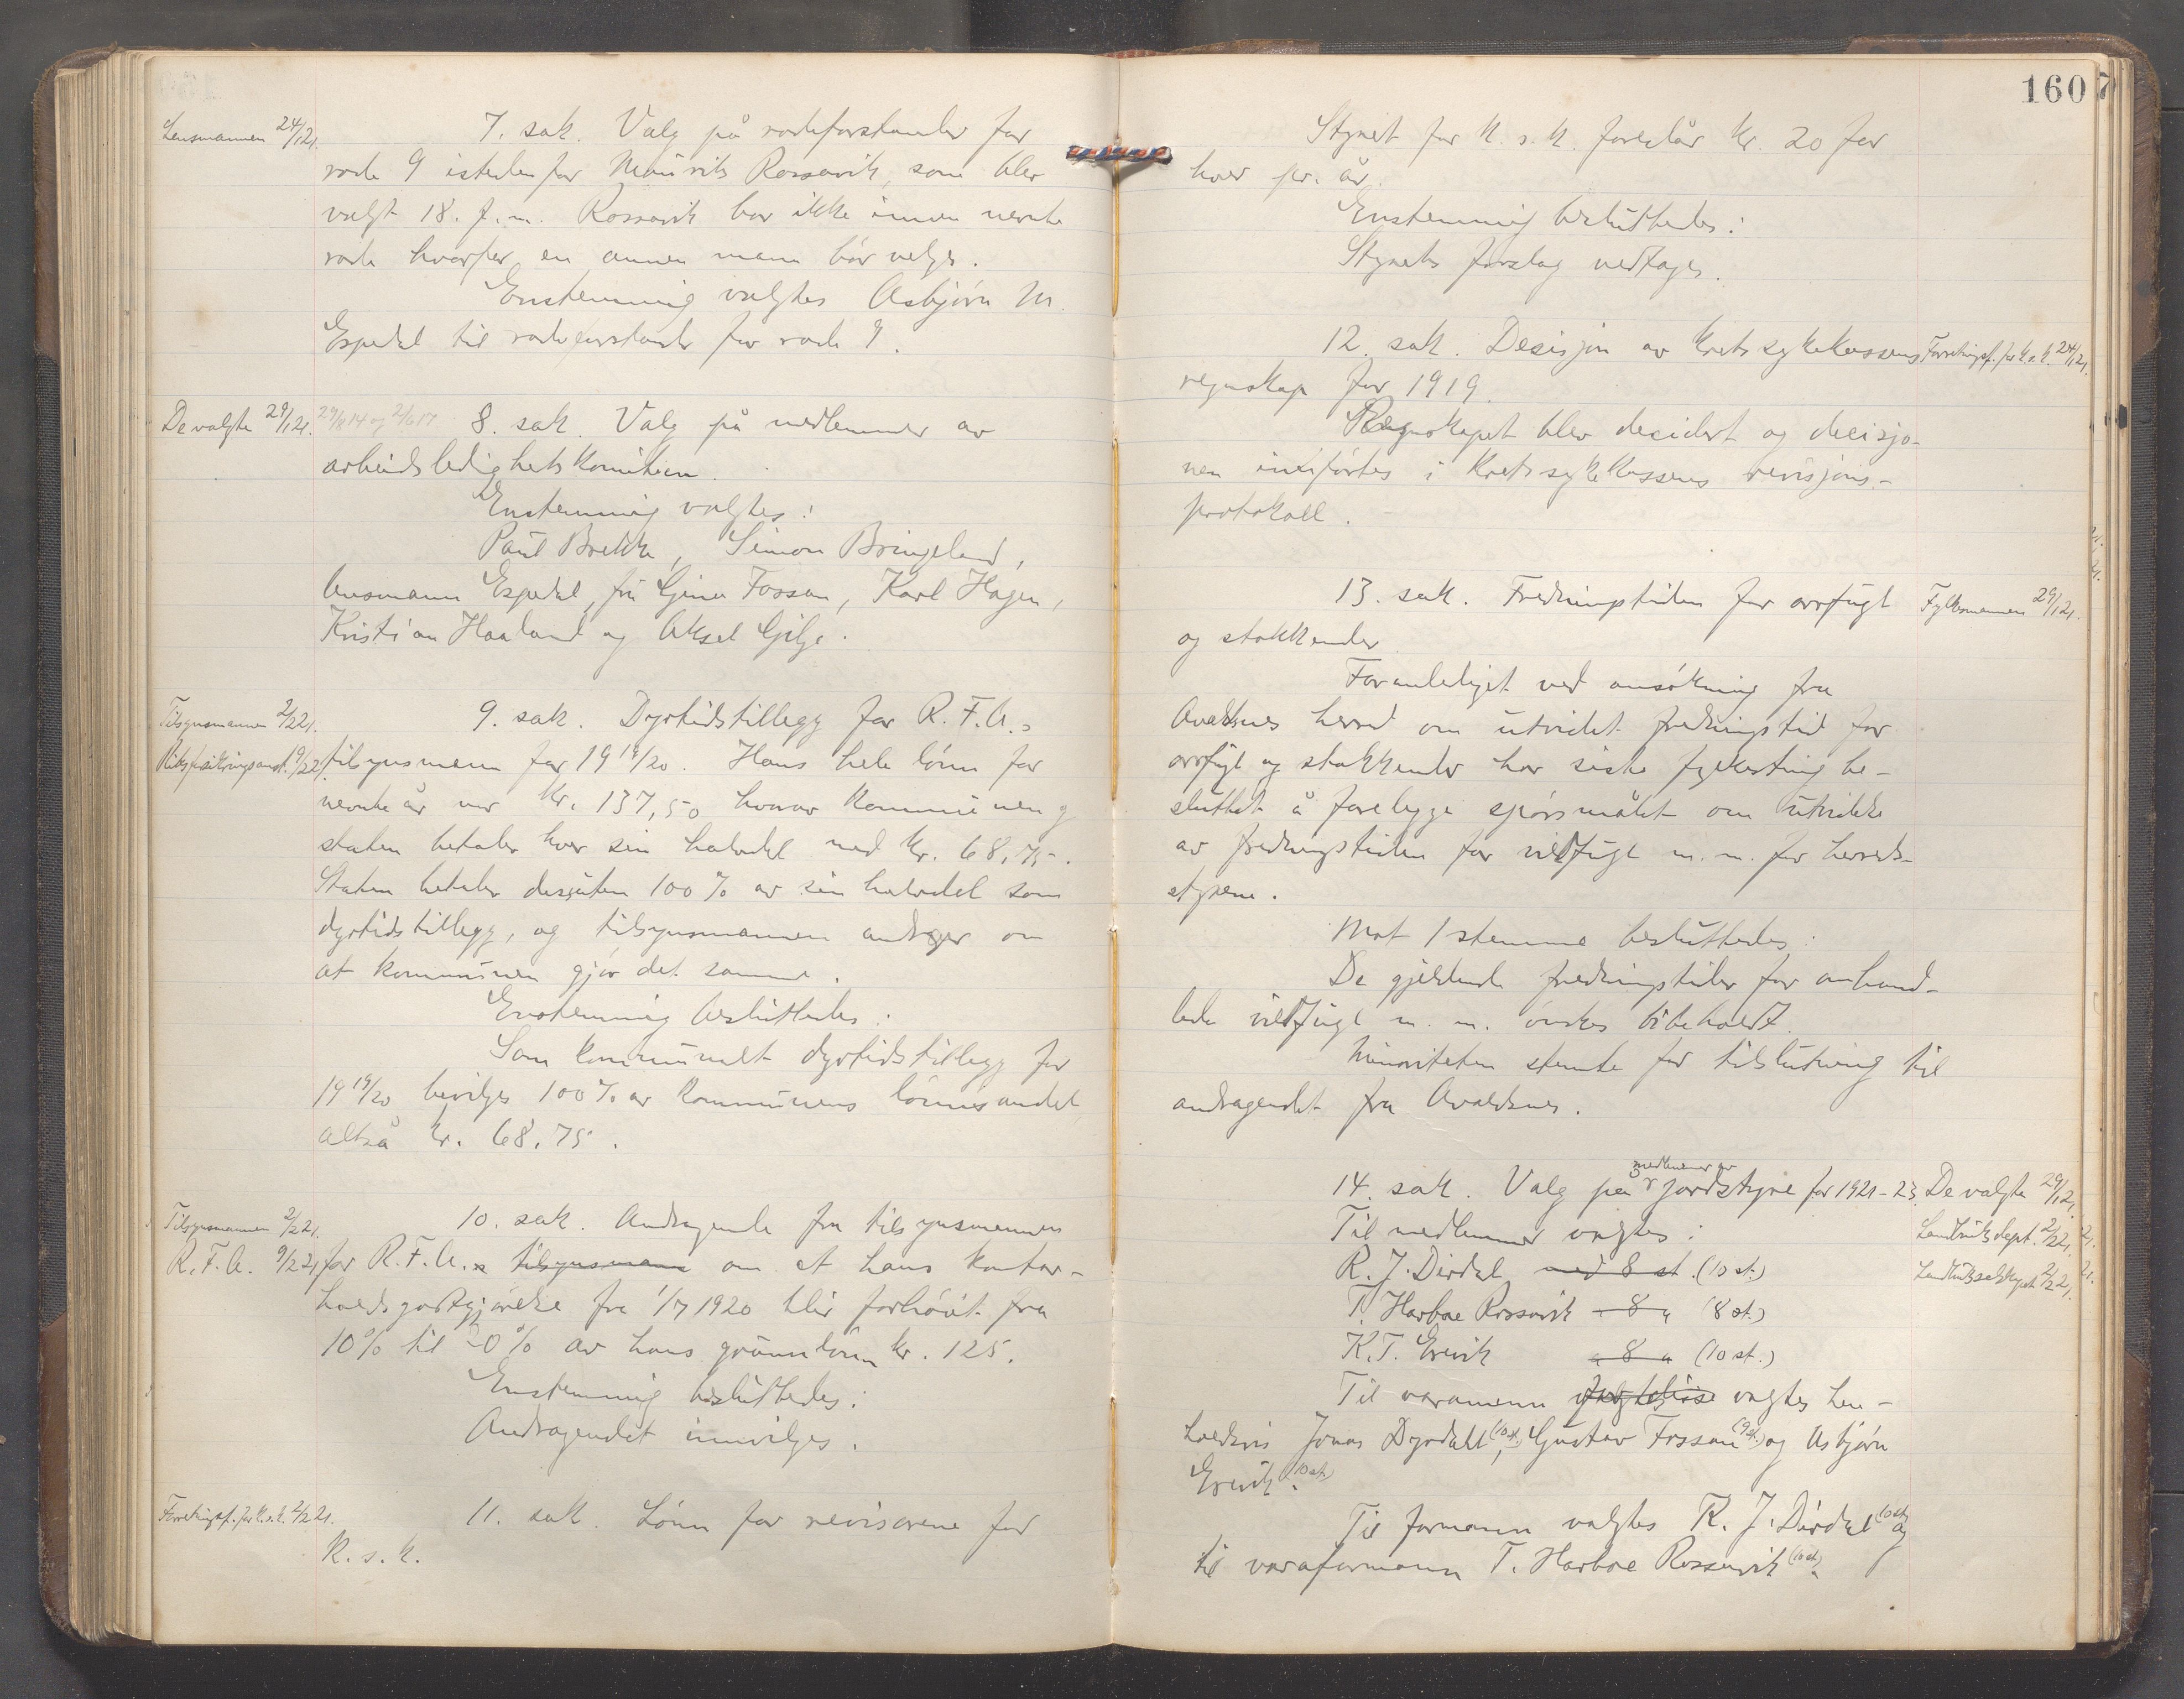 Lensmannen 24/1 21.
7. sak. Valg på rodeforstander for
rode 9 istedenfor Mauritz Rossavik, som blev
valgt 18. f. m. Rossavik bor ikke innen nevnte
rode hvorfor en annen mann bör velges.
Enstemmig valgtes Asbjörn M.
Espedal til rodeforstander for rode 9.
De valgte 29/1 21. 29/8 14 og 2/6 17
8. sak. Valg på medlemmer av
arbeidsledighetskomiteen.
Enstemmig valgtes:
Paul Brekke, Simon Bringeland,
lensmann Espedal, fru Gina Fossan, Karl Hagen,
Kristian Haaland og Aksel Gilje.
Tilsynsmannen 2/2 21.
Riksforsikringsanst. 19/2 21.
9. sak. Dyrtidstillegg for R. F. A.s
tilsynsmann for 19 19/20. Hans hele lönn for
nevnte år var kr. 137,50 hvorav kommunen og
staten betaler hver sin halvdel med kr. 68,75.
Staten betaler dessuten 100 % av sin halvdel som
dyrtidstillegg, og tilsynsmannen andrager om
at kommunen gjör det samme.
Enstemmig besluttedes:
Som kommunalt dyrtidstillegg for
19 19/20 bevilges 100 % av kommunens lönnsandel,
altså kr. 68,75.
Tilsynsmannen 2/2 21.
R. F. A. 9/2 21.
10. sak. Andragende fra tilsynsmannen
for R. F. A.s tilsynsmann om at hans kontor-
holdsgodtgjörelse fra 1/7 1920 blir forhöiet fra
10 % til 20 % av hans grunnlönn kr. 125.
Enstemmig besluttedes:
Andragendet innvilges.
Forretningsf. for k.s.k. 2/2 21.
11. sak. Lönn for revisorene for
k. s. k.
160
Styret for k. s. k. foreslår kr. 20 for
hver pr. år.
Enstemmig besluttedes:
Styrets forslag vedtages.
12. sak. Desisjon av kretssykekassens
Forretningsf. for k.s.k. 24/1 21.
regnskap for 1919.
Regnskapet blev decidert og decisjo-
nen innförtes i kretssykekassens revisjons-
protokoll.
13. sak. Fredningstiden for orrfugl
Fylkesmannen 29/1 21.
og stokkender.
Foranlediget ved ansökning fra
Avaldsnes herred om utvidet fredningstid for
orrfugl og stokkender har siste fylkesting be-
sluttet å forelegge spörsmålet om utvidelse
av fredningstiden for vildfugl m. m. for herreds-
styrene.
Mot 1 stemme besluttedes:
De gjeldende fredningstider for omhand-
lede vildfugl m. m. önskes bibeholdt.
Minoriteten stemte for tilslutning til
andragendet fra Avaldsnes.
14. sak. Valg på medlemmer av jordstyre for 1921-23.
De valgte 29/1 21.
Landbruksdept. 2/2 21.
Landbruksselskapet 2/2 21.
Til medlemmer valgtes:
R. J. Dirdal med 8 st. (10 st.)
T. Harboe Rossavik - 8 " (8 st.)
K. T. Erevik " 8 " (10 st.)
Til varamenn valgtes hen-
holdsvis Jonas Dyrdalt (10 st.), Gustav Fossan (9 st.) og Asbjörn
Erevik (10 st.).
Til formann valgtes R. J. Dirdal (10 st.) og
til varaformann T. Harboe Rossavik (10 st.).